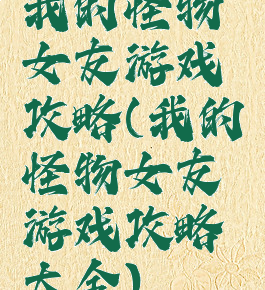 我的怪物
女友游戏
攻略(我的
怪物女友
游戏攻略
大全)